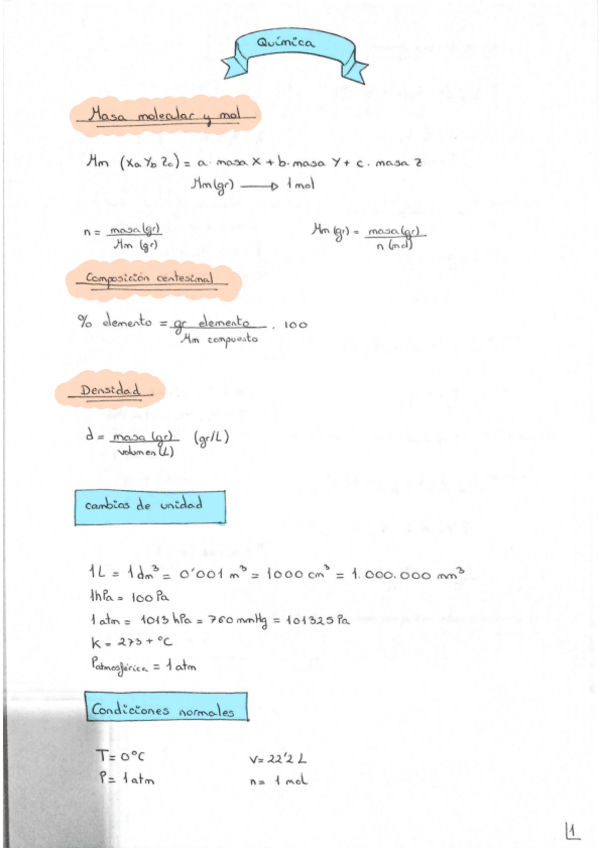 Química
Masa molecular y mol
Mm (XaYbZc) = a · masa X + b · masa Y + c · masa Z
Mm(gr) → 1 mol
n = masa (gr) / Mm (gr)
Mm (gr) = masa (gr) / n (mol)
Composición centesimal
% elemento = gr elemento / Mm compuesto · 100
Densidad
d = masa (gr) / volumen (L) (gr/L)
cambios de unidad
1L = 1 dm³ = 0'001 m³ = 1000 cm³ = 1.000.000 mm³
1hPa = 100 Pa
1 atm = 1013 hPa = 760 mmHg = 101325 Pa
K = 273 + ºC
Patmosférica = 1 atm
Condiciones normales
T = 0ºC
V = 22'2 L
P = 1 atm
n = 1 mol
1